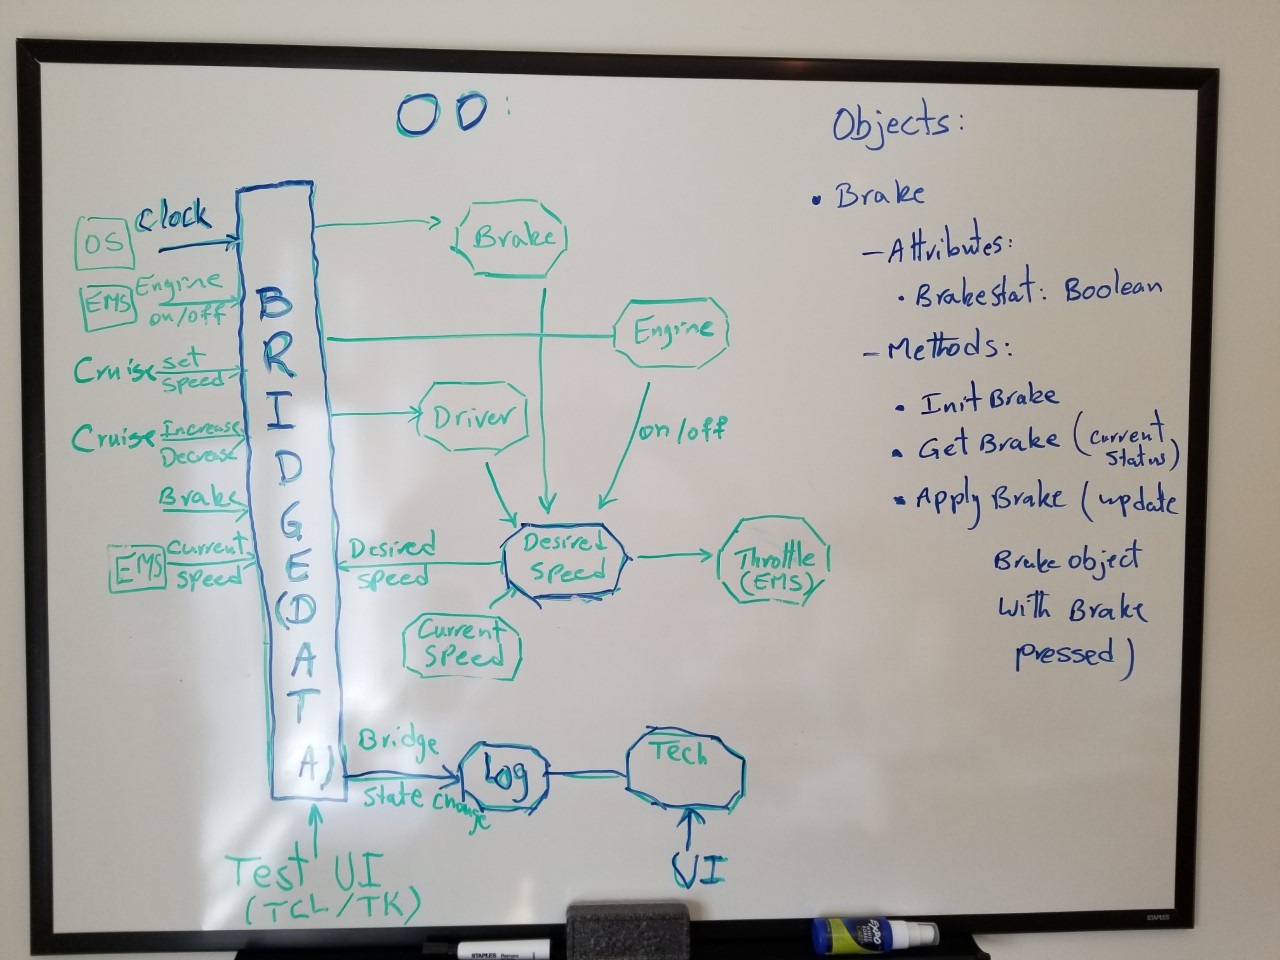 OO:
Clock
OS
Engine
EMS
on/off
Cruise set
speed
Cruise Increase
Decrease
Brake
Current
EMS
speed
BRIDGE(DATA)
Brake
Engine
Driver
on/off
Desired
speed
Desired
Speed
Throttle
(EMS)
Current
Speed
Bridge
State change
Log
Tech
UI
Test UI
(TCL/TK)
Objects:
• Brake
– Attributes:
• Brakestat: Boolean
– Methods:
• Init Brake
• Get Brake (current
status)
• Apply Brake (update
Brake object
with Brake
pressed)
STAPLES
STAPLES
EXPO